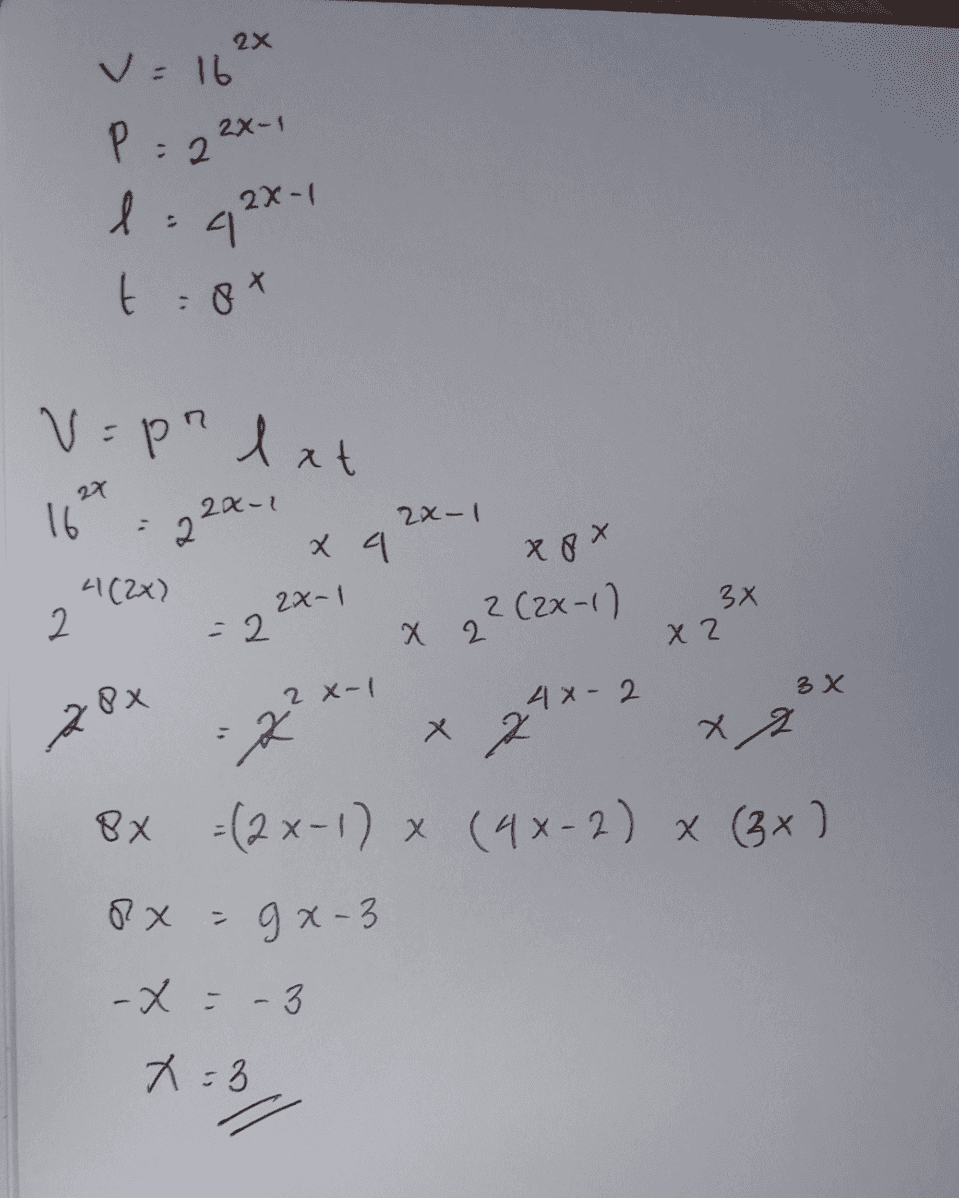 V = 16^{2x}
P = 2^{2x-1}
l = 4^{2x-1}
t = 8^{x}
V = p × l × t
16^{2x} = 2^{2x-1} × 4^{2x-1} × 8^{x}
2^{4(2x)} = 2^{2x-1} × 2^{2(2x-1)} × 2^{3x}
2^{8x} = 2^{2x-1} × 2^{4x-2} × 2^{3x}
8x = (2x-1) × (4x-2) × (3x)
8x = 9x-3
-x = -3
x = 3